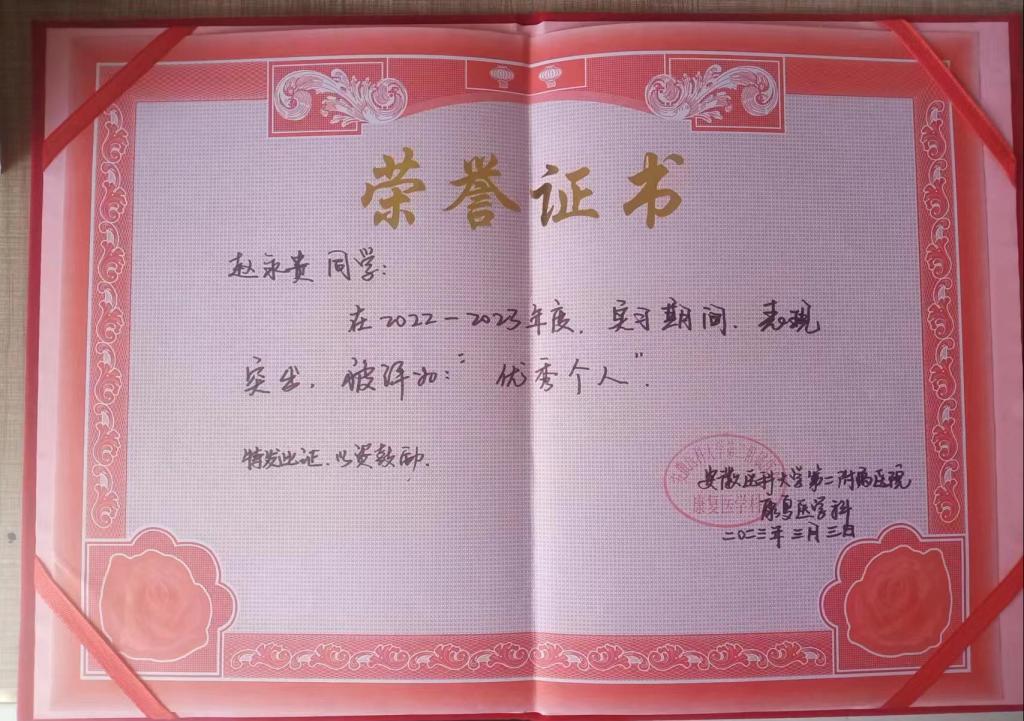 荣誉证书
赵永贵 同学:
在2022-2023年度,实习期间,表现
突出,被评为:"优秀个人".
特发此证,以资鼓励.
安徽医科大学第二附属医院
康复医学科
安徽医科大学第二附属医院
康复医学科
二〇二三年三月三日